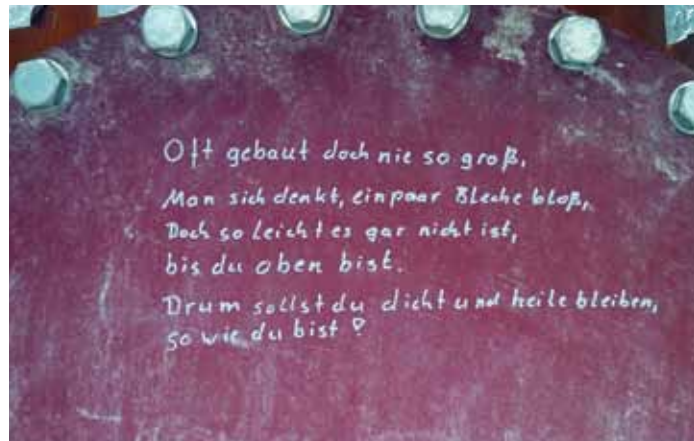 Oft gebaut doch nie so groß,
Man sich denkt, ein paar Bleche bloß,
Doch so leicht es gar nicht ist,
bis du oben bist.
Drum sollst du dicht und heile bleiben,
so wie du bist!